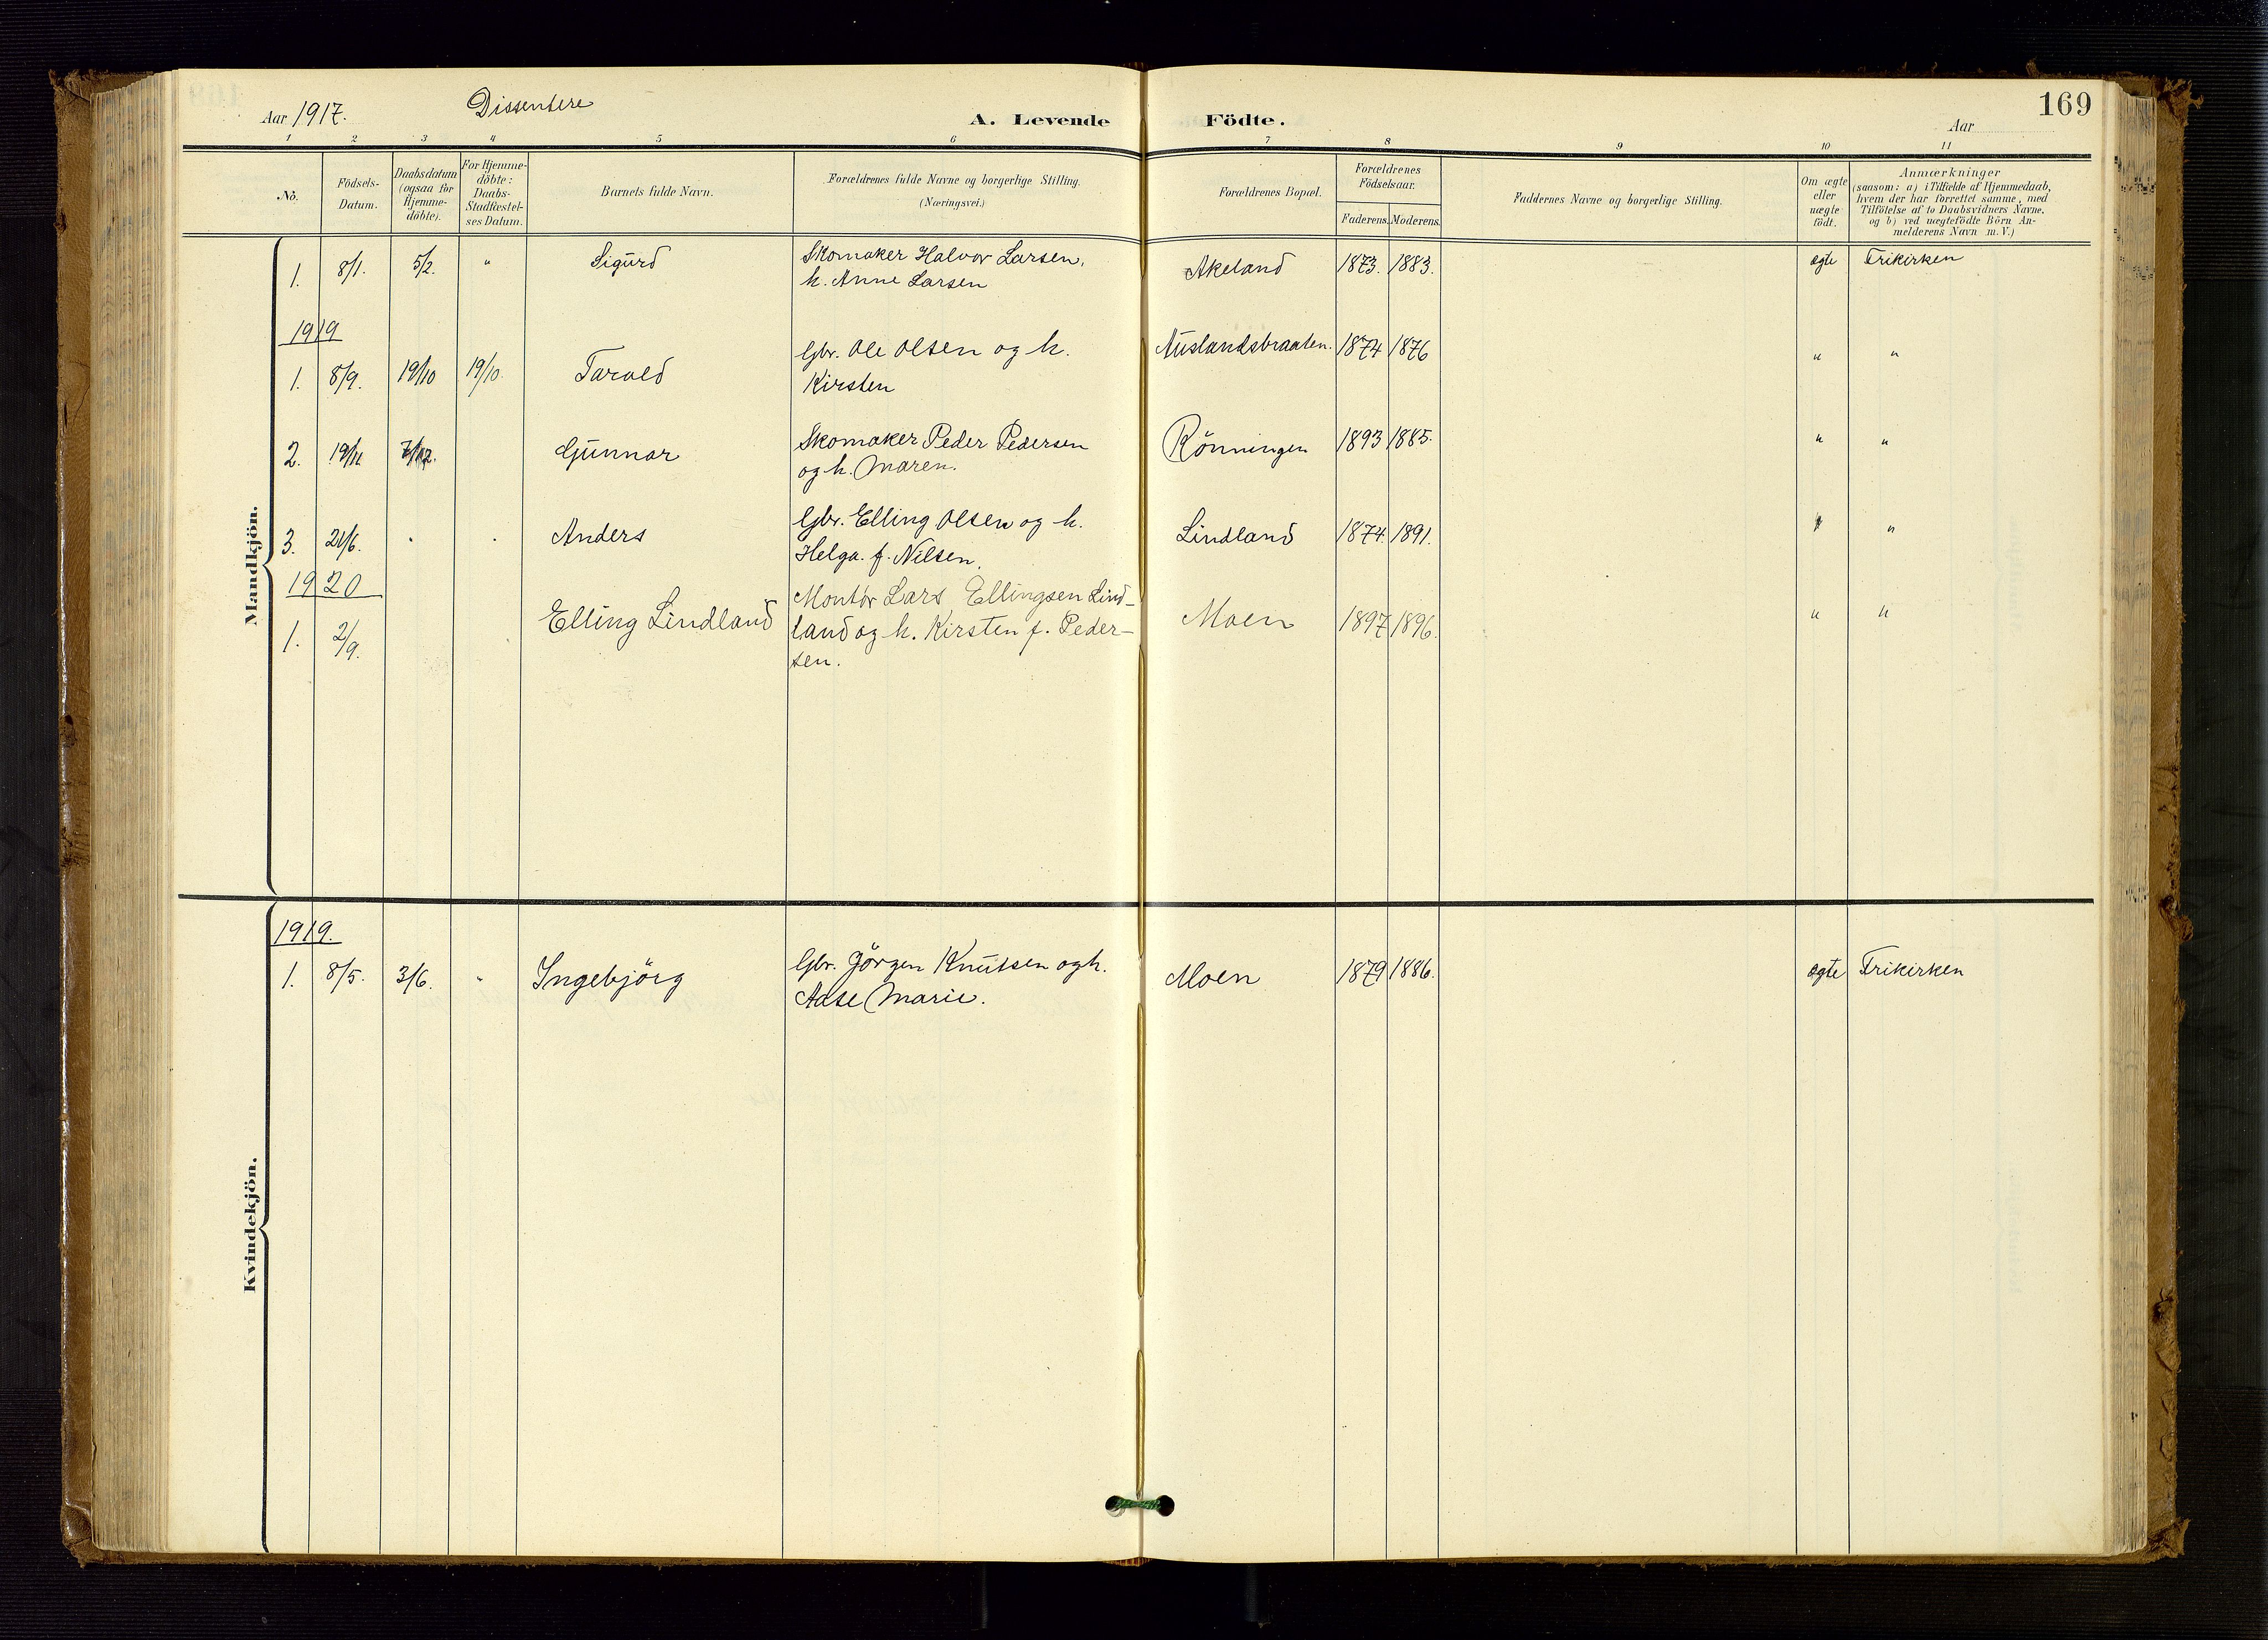 169
Aar 1917.
Dissentere
A. Levende Födte.
Aar
1 2 3 4 5 6 7 8 9 10 11
No.
Födsels-Datum.
Daabsdatum (ogsaa for Hjemme-döbte).
For Hjemme-döbte: Daabs-Stadfæstel-ses Datum.
Barnets fulde Navn.
Forældrenes fulde Navne og borgerlige Stilling.
(Næringsvei.)
Forældrenes Bopæl.
Forældrenes Födselsaar.
Faderens. Moderens.
Faddernes Navne og borgerlige Stilling.
Om ægte eller uægte födt.
Anmærkninger
(saasom: a) i Tilfælde af Hjemmedaab,
hvem der har forrettet samme, med
Tilföielse af to Daabsvidners Navne,
og b) ved uægtefödte Börn An-
melderens Navn m. V.)
Mandkjön.
1. 8/1. 5/2. " Sigurd Skomaker Halvor Larsen, Akeland 1873. 1883. ægte Frikirken
h. Anne Larsen
1919
1. 8/9. 19/10 19/10. Tarald Gbr. Ole Olsen og h. Auslandsbraaten. 1874 1876 " "
Kirsten
2. 19/11. 7/12. Gunnar Skomaker Peder Pedersen Rönningen 1893 1885. " "
og h. Maren.
3. 21/6. Anders Gbr. Elling Olsen og h. Lindland 1874. 1891. " "
Helga. f. Nilsen.
1920
1. 2/9. Elling Lindland Montör Lars Ellingsen Lind- Moen 1897 1896. " "
land og h. Kirsten f. Peder-
sen.
Kvindekjön.
1919.
1. 8/5. 3/6. " Ingebjörg Gbr. Jörgen Knutsen og h. Moen 1879 1886. ægte Frikirken
Aase Marie.